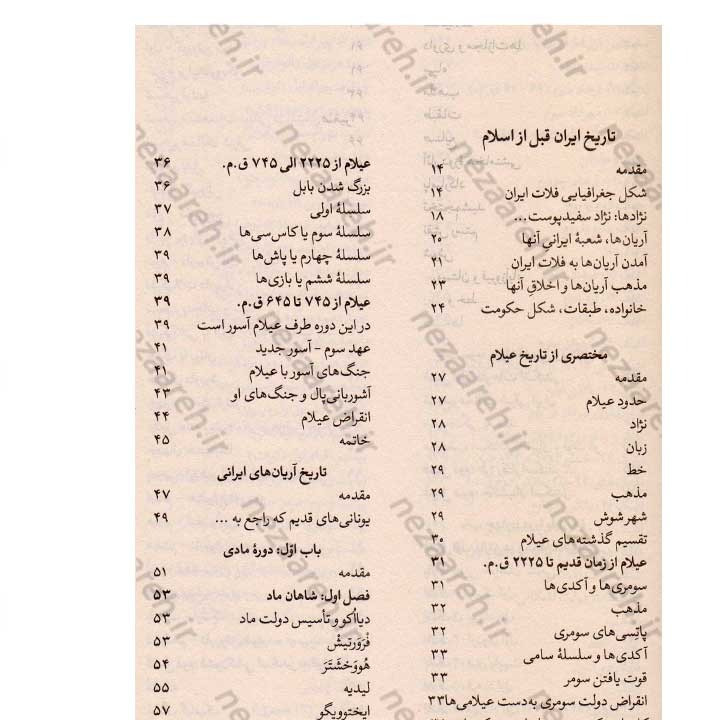 تاریخ ایران قبل از اسلام
مقدمه ۱۴
شکل جغرافیایی فلات ایران ۱۴
نژادها: نژاد سفیدپوست... ۱۸
آریان‌ها، شعبهٔ ایرانیِ آنها ۲۰
آمدن آریان‌ها به فلات ایران ۲۱
مذهب آریان‌ها و اخلاقِ آنها ۲۳
خانواده، طبقات، شکل حکومت ۲۴
مختصری از تاریخ عیلام
مقدمه ۲۷
حدود عیلام ۲۷
نژاد ۲۸
زبان ۲۸
خط ۲۹
مذهب ۲۹
شهر شوش ۲۹
تقسیم گذشته‌های عیلام ۳۰
عیلام از زمان قدیم تا ۲۲۲۵ ق.م. ۳۱
سومری‌ها و آکدی‌ها ۳۱
مذهب ۳۲
پاتِسی‌های سومری ۳۲
آکدی‌ها و سلسلهٔ سامی ۳۳
قوت یافتن سومر ۳۳
انقراض دولت سومری به‌دست عیلامی‌ها ۳۳
عیلام از ۲۲۲۵ الی ۷۴۵ ق.م. ۳۶
بزرگ شدن بابل ۳۶
سلسلهٔ اولی ۳۷
سلسلهٔ سوم یا کاس‌سی‌ها ۳۸
سلسلهٔ چهارم یا پاش‌ها ۳۹
سلسلهٔ ششم یا بازی‌ها ۳۹
عیلام از ۷۴۵ تا ۶۴۵ ق.م. ۳۹
در این دوره طرف عیلام آسور است ۳۹
عهد سوم - آسور جدید ۴۱
جنگ‌های آسور با عیلام ۴۱
آشوربانی‌پال و جنگ‌های او ۴۳
انقراض عیلام ۴۴
خاتمه ۴۵
تاریخ آریان‌های ایرانی
مقدمه ۴۷
یونانی‌های قدیم که راجع به ... ۴۹
باب اوّل: دورهٔ مادی
مقدمه ۵۱
فصل اول: شاهان ماد ۵۳
دیااُکو و تأسیس دولت ماد ۵۳
فْرَوَرتیشْ ۵۳
هُووَخْشَتَرَ ۵۴
لیدیه ۵۵
ایختوویگو ۵۷
nezaareh.ir